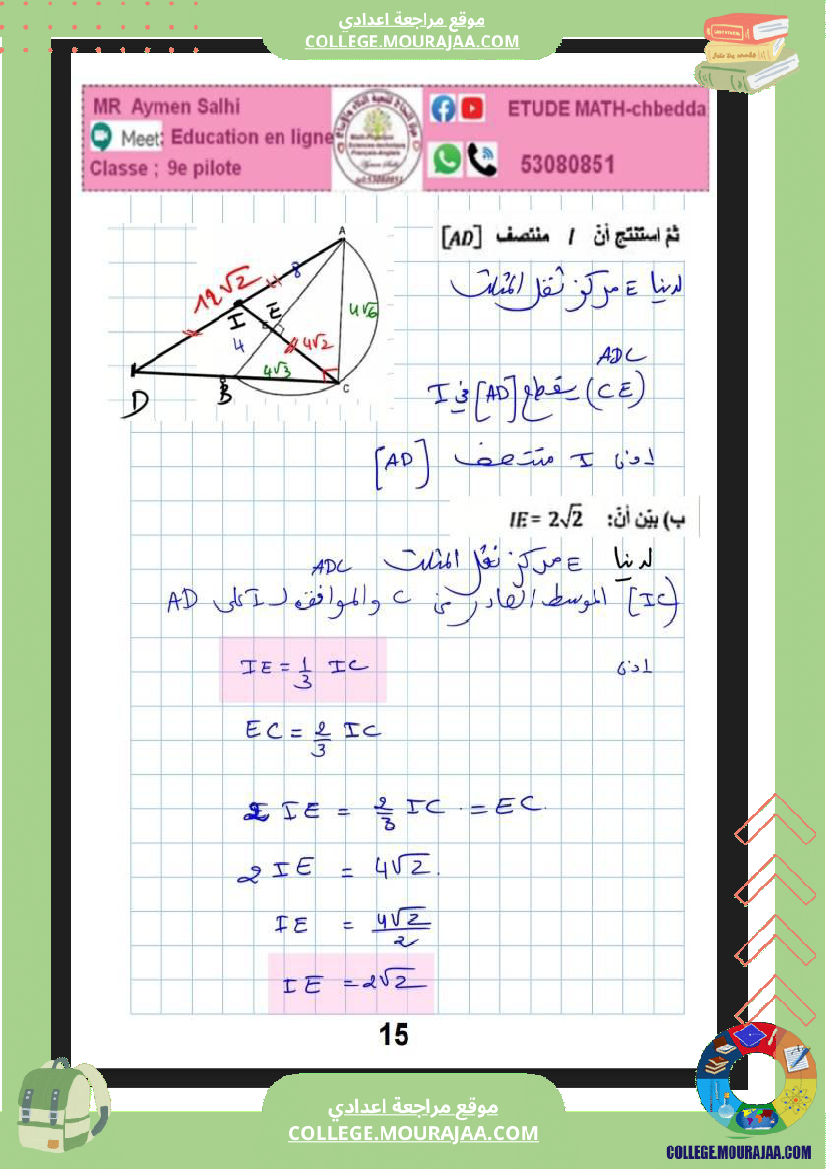 موقع مراجعة اعدادي
COLLEGE.MOURAJAA.COM
MR Aymen Salhi
Meet: Education en ligne
Classe ; 9e pilote
ETUDE MATH-chbedda
53080851
ثم استنتج أنّ I منتصف [AD]
لدينا E مركز ثقل المثلث
ADC
(CE) يقطع [AD] في I
اذن I منتصف [AD]
A
8
12√2
I
E
4√6
4√2
4
4√3
D
B
C
ب) بيّن أنّ: IE = 2√2
لدينا E مركز ثقل المثلث ADC
[IC] الموسط الصادر من C والموافق لـ AD
اذن
IE = 1/3 IC
EC = 2/3 IC
2 IE = 2/3 IC = EC.
2 IE = 4√2.
IE = 4√2/2
IE = 2√2
15
موقع مراجعة اعدادي
COLLEGE.MOURAJAA.COM
COLLEGE.MOURAJAA.COM